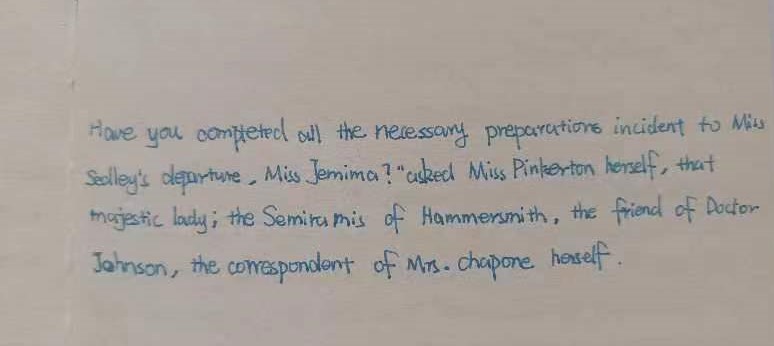 Have you completed all the necessary preparations incident to Miss
Sedley's departure, Miss Jemima?" asked Miss Pinkerton herself, that
majestic lady; the Semiramis of Hammersmith, the friend of Doctor
Johnson, the correspondent of Mrs. chapone herself.